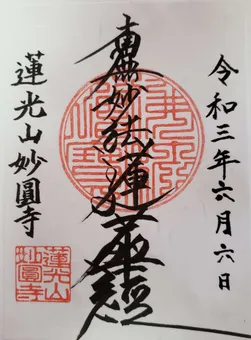 令和三年六月六日
南無妙法蓮華經
蓮光山妙圓寺
蓮光山
妙圓寺